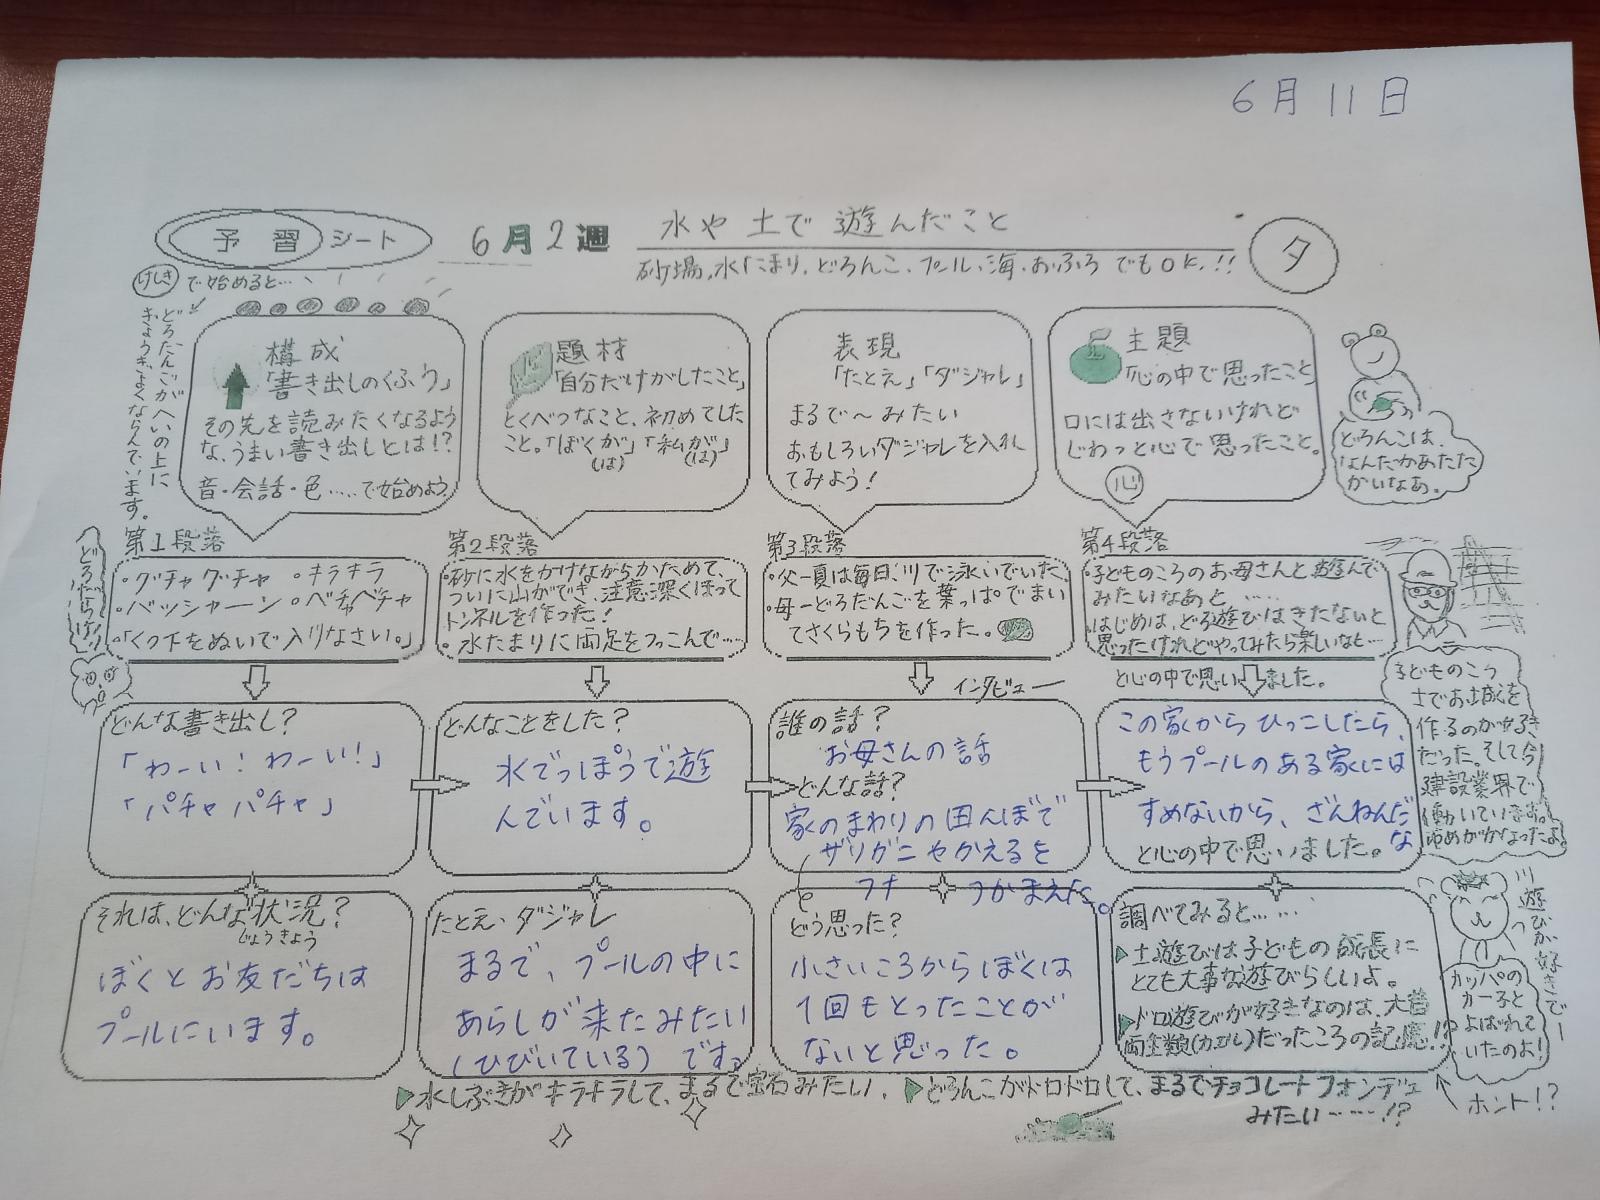 6月11日
予習シート
6月2週
水や土で遊んだこと
砂場、水たまり、どろんこ、プール、海、おふろでもOK.!!
タ
けしきで始めると…
どろだんごがへいの上に
ぎょうぎよくならんでいます。
構成
「書き出しのくふう」
その先を読みたくなるよう
な、うまい書き出しとは!?
音・会話・色……で始めよう。
題材
「自分だけがしたこと」
とくべつなこと、初めてした
こと。「ぼくが」「私が」
(は) (は)
表現
「たとえ」「ダジャレ」
まるで〜みたい
おもしろいダジャレを入れ
てみよう!
主題
「心の中で思ったこと」
口には出さないけれど
じわっと心で思ったこと。
心
どろんこは、
なんだかあたた
かいなあ。
第1段落
・グチャグチャ ・キラキラ
・バッシャーン ・ベチャベチャ
・「くつ下をぬいで入りなさい。」
第2段落
・砂に水をかけながらかためて、
ついに山ができ、注意深くほって
トンネルを作った!
・水たまりに両足をつっこんで……
第3段落
・父ー夏は毎日、川で泳いでいた。
・母ーどろだんごを葉っぱでまい
てさくらもちを作った。
第4段落
・子どものころのお母さんと遊んで
みたいなあと……
・はじめは、どろ遊びはきたないと
思ったけれどやってみたら楽しいなと…
と心の中で思いました。
インタビュー
どんな書き出し?
「わーい!わーい!」
「パチャパチャ」
どんなことをした?
水でっぽうで遊
んでいます。
誰の話?
お母さんの話
どんな話?
家のまわりの田んぼで
ザリガニやかえるを
フナ つかまえた。
この家からひっこしたら、
もうプールのある家には
すめないから、ざんねんだな
と心の中で思いました。
子どものころ
さでお城を
作るのが好き
だった。そして今
建設業界で
働いています。
ゆめがかなったよ!
それは、どんな状況?
じょうきょう
ぼくとお友だちは
プールにいます。
たとえ、ダジャレ
まるで、プールの中に
あらしが来たみたい
(ひびいている)です。
どう思った?
小さいころからぼくは
1回もとったことが
ないと思った。
調べてみると……
土遊びは子どもの成長に
とても大事な遊びらしいよ。
ドロ遊びが好きなのは、大昔
両生類(カエル)だったころの記憶!?
川遊びが好きでー
カッパの
カー子と
よばれて
いたのよ!
水しぶきがキラキラして、まるで宝石みたい。
どろんこがドロドロして、まるでチョコレートフォンデュ
みたい……!?
ホント!?